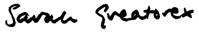 Sarah Greatorex